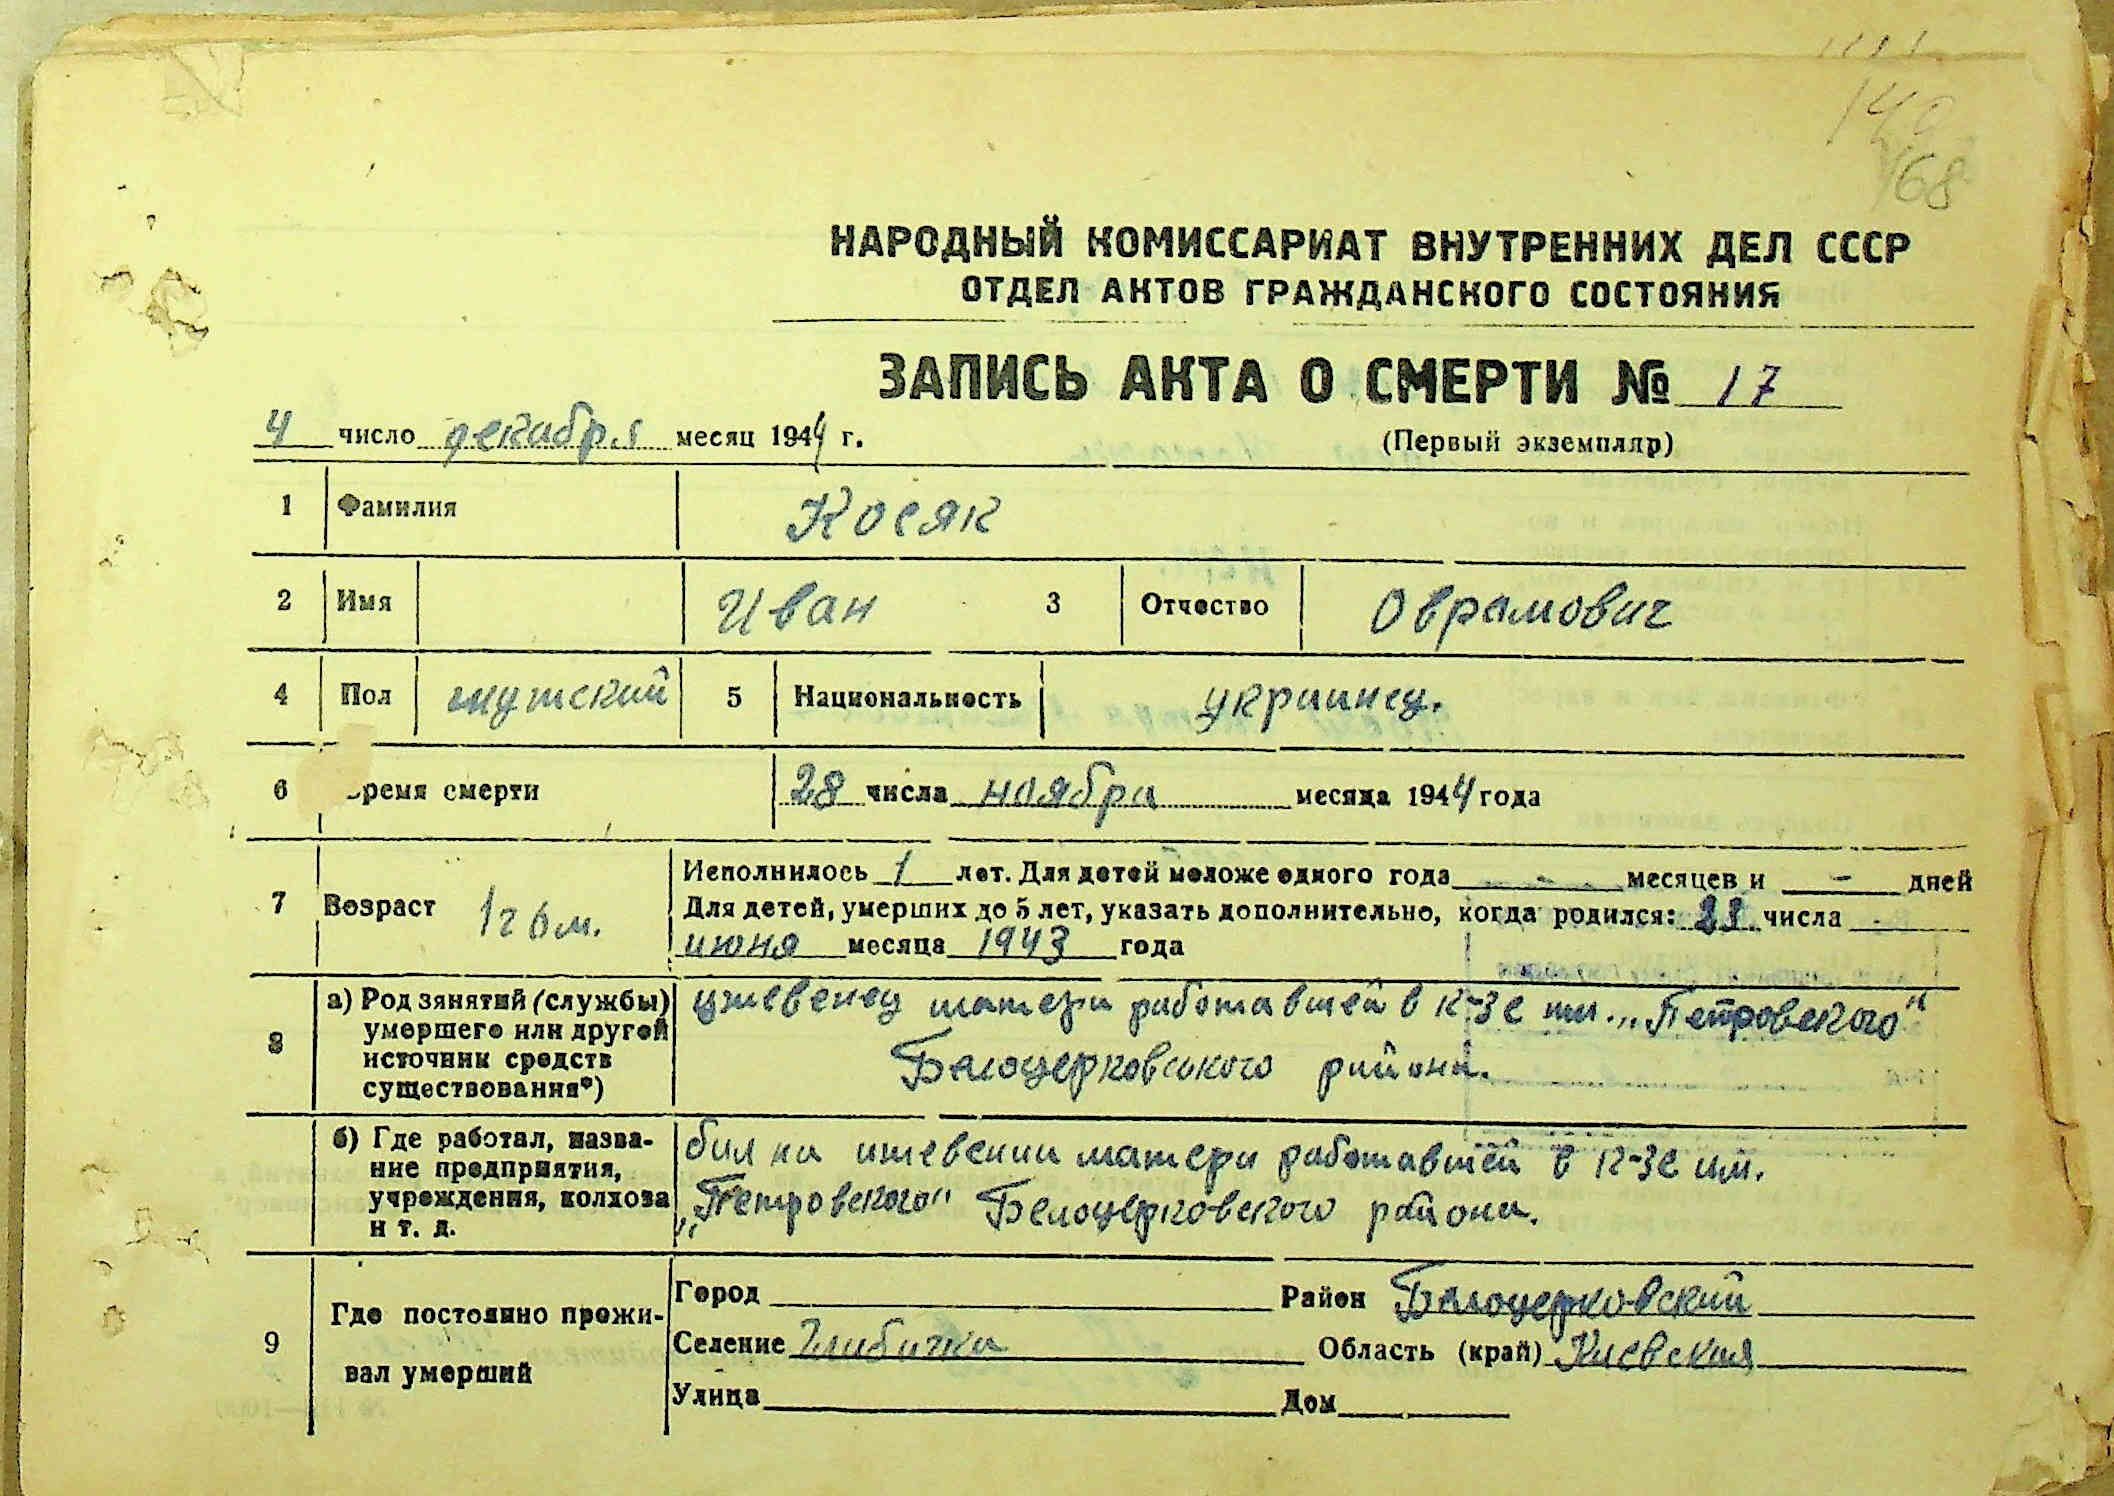 140
168
НАРОДНЫЙ КОМИССАРИАТ ВНУТРЕННИХ ДЕЛ СССР
ОТДЕЛ АКТОВ ГРАЖДАНСКОГО СОСТОЯНИЯ
ЗАПИСЬ АКТА О СМЕРТИ № 17
4 число декабря месяц 1944 г. (Первый экземпляр)
1 Фамилия Косяк
2 Имя Иван 3 Отчество Оврамович
4 Пол мужский 5 Национальность украинец.
6 Время смерти 28 числа ноября месяца 1944 года
7 Возраст 1 г 6 м. Исполнилось 1 лет. Для детей моложе одного года - месяцев и - дней
Для детей, умерших до 5 лет, указать дополнительно, когда родился: 23 числа
июня месяца 1943 года
8 а) Род занятий (службы) умершего или другой источник средств существования*) ижевенец матери работавшей в к-зе им. „Петровского“
Белоцерковського района.
б) Где работал, название предприятия, учреждения, колхоза и т. д. бил на ижевении матери работавшей в к-зе им.
„Петровского“ Белоцерковского района.
9 Где постоянно проживал умерший Город Район Белоцерковский
Селение Глибичка Область (край) Киевская
Улица Дом